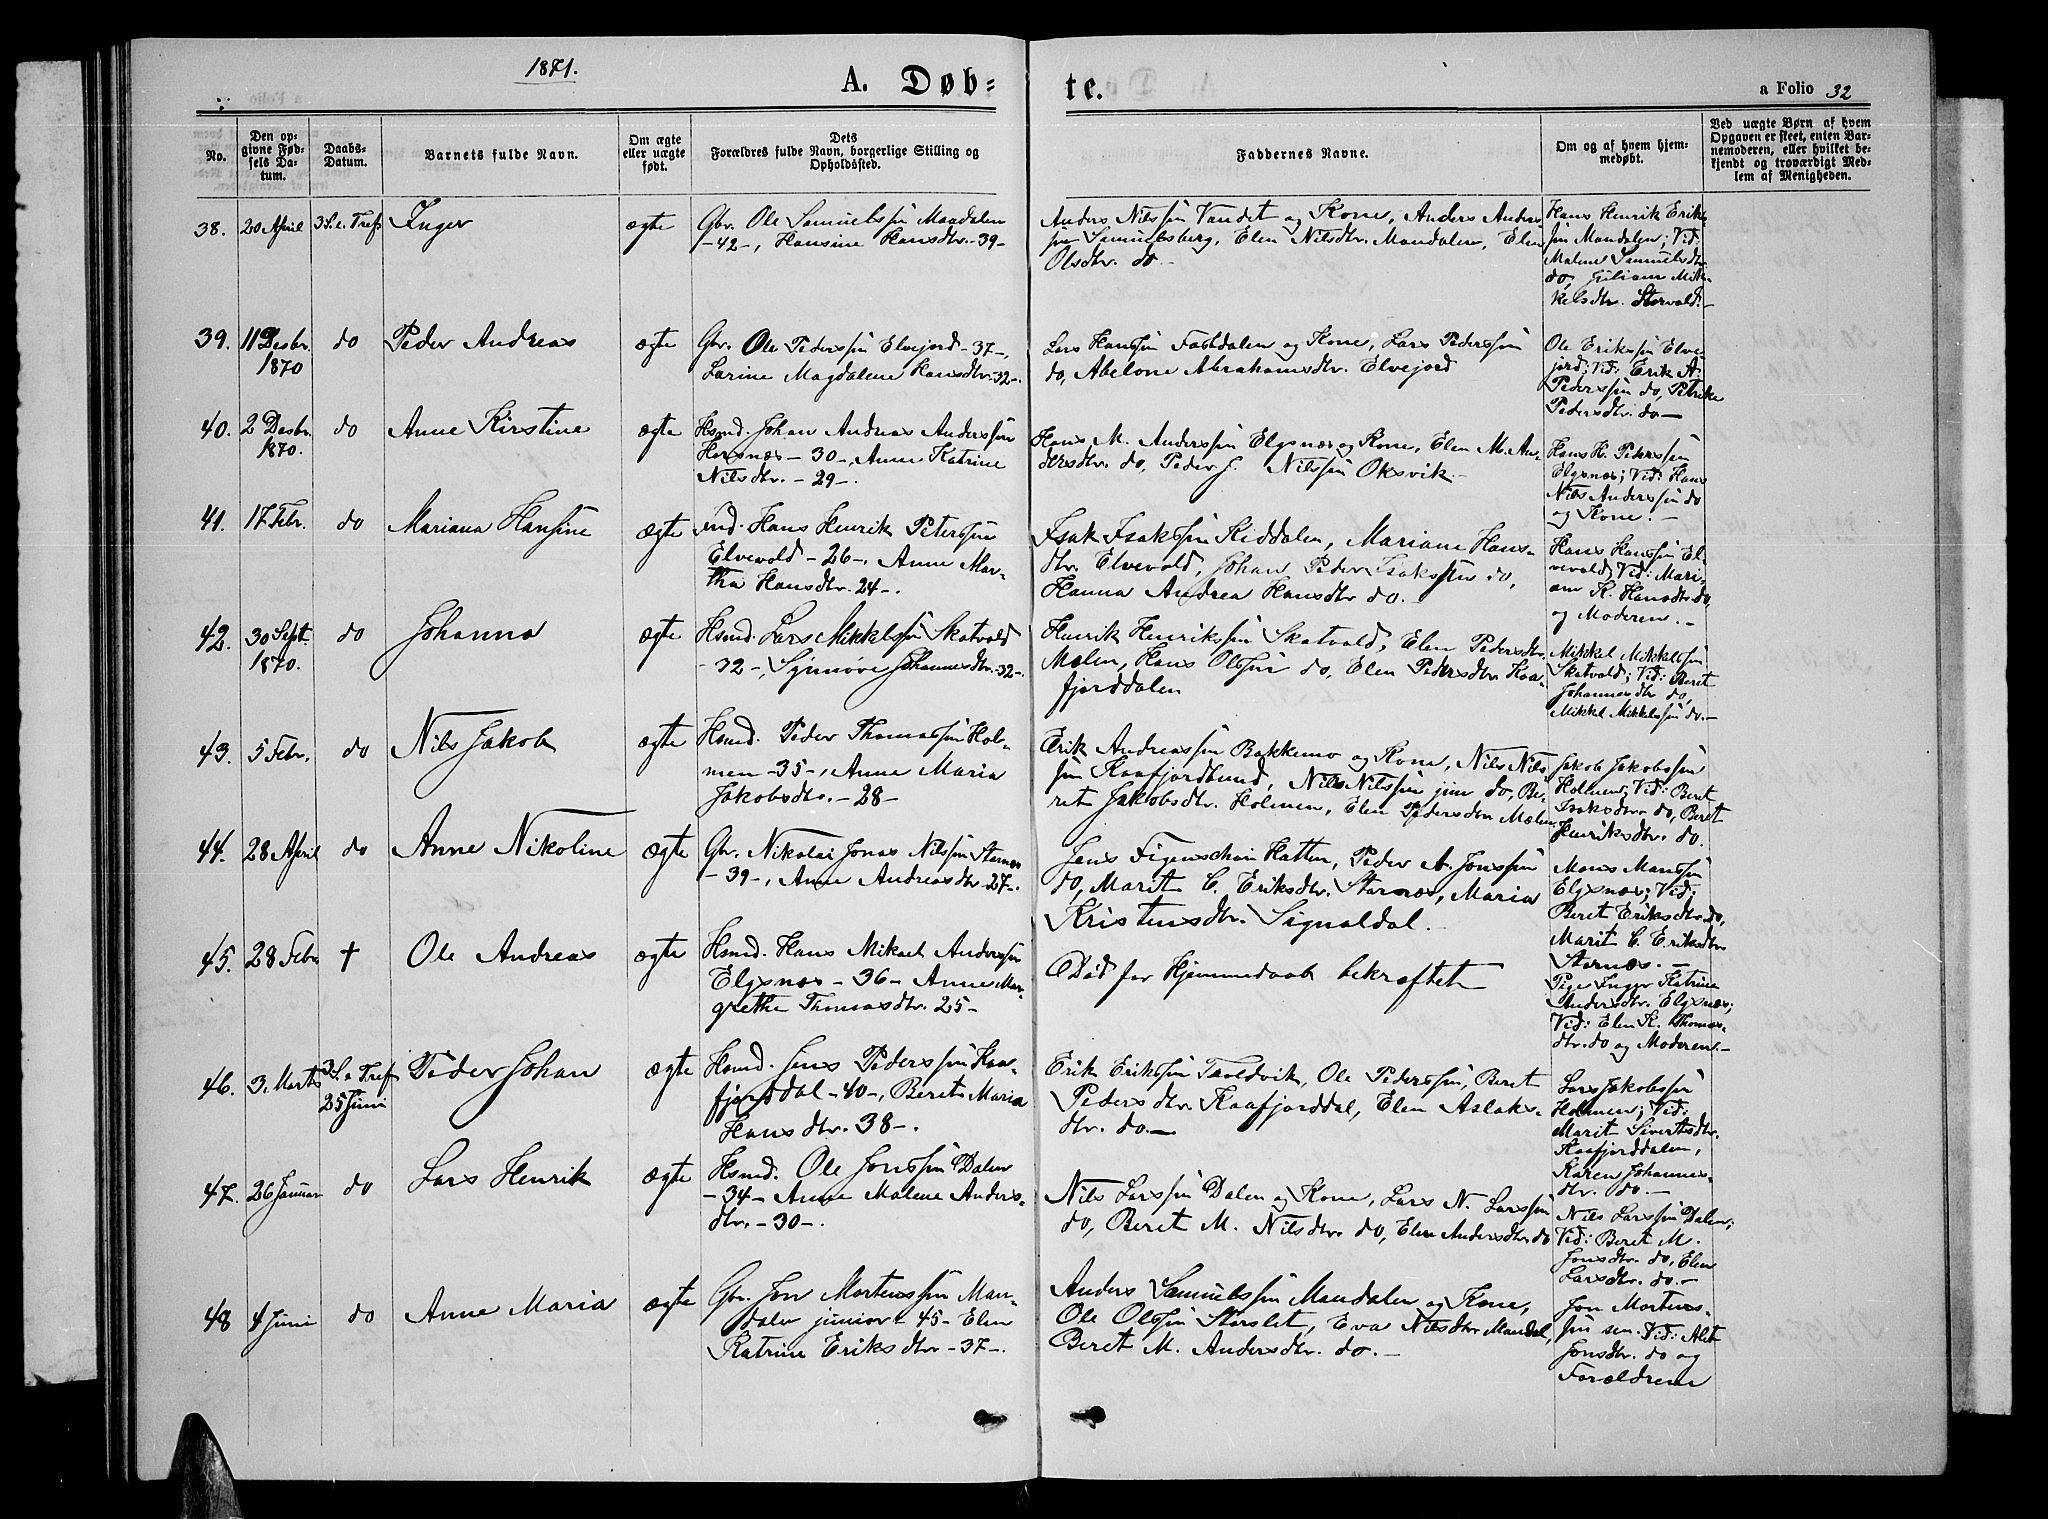 1871.
A. Døb=
te.
a Folio 32
No.
Den op=
givne Fød=
sels Da=
tum.
Daabs=
Datum.
Barnets fulde Navn.
Om ægte
eller uægte
født.
Dets
Forældres fulde Navn, borgerlige Stilling og
Opholdssted.
Faddernes Navne.
Om og af hvem hjem=
medøbt.
Ved uægte Børn af hvem
Opgaven er skeet, enten Bar=
nemoderen, eller hvilket be=
kjendt og troværdigt Med=
lem af Menigheden.
38. 20 April 3 S. e. Tref Inger ægte
Gbr. Ole Samuelssøn Mandalen
- 42 -, Hansine Hansdtr. - 39 -
Anders Nilssøn Vandet og Kone, Anders Anders
søn Samuelsberg, Elen Nilsdtr. Mandalen, Elen
Olsdtr. do
Hans Henrik Erik
søn Mandalen; Vid:
Malene Samuelsdtr
do, Juliane Mik
kelsdtr. Storvold. -
39. 11 Desbr. 1870 do Peder Andreas ægte
Gbr. Ole Pederssøn Elvejord - 37 -,
Larine Magdalene Hansdtr. - 32 -.
Lars Hanssøn Fastdalen og Kone, Lars Pederssøn
do, Abelone Abrahamsdtr. Elvejord
Ole Erikssøn Elve-
jord; Vid: Erik A.
Pederssøn do, Petrike
Pedersdtr. do -
40. 2 Desbr. 1870. do Anne Kirstine ægte
Hsmd. Johan Andreas Anderssøn
Horsnæs - 30 -, Anne Katrine
Nilsdtr. - 29 -.
Hans M. Anderssøn Elgsnæs og Kone, Elen M. An-
dersdtr. do, Peder J. Nilssøn Oksvik. -
Hans H. Pederssøn
Elgsnæs; Vid: Hans
Nils Anderssøn do
og Kone. -
41. 17 Febr. do Mariana Hansine ægte
Hans Henrik Peterssøn
Elvevold - 26 -, Anne Mar-
tha Hansdtr. 24 -.
Isak Isakssøn Kiddalen, Mariane Hans-
dtr. Elvevold, Johan Peder Isakssøn do,
Hanna Andrea Hansdtr do. -
Hans Hanssøn El-
vevold; Vid: Mari-
ane K. Hansdtr. do,
og Moderen. -
42. 30 Sept. 1870. do Johanna ægte
Hsmd. Lars Mikkelssøn Skatvold
- 32 -, Synnøve Johannesdtr. - 32 -.
Henrik Henrikssøn Skatvold, Elen Pedersdtr.
Mælen, Hans Olssøn do, Elen Pedersdtr. Kaa-
fjorddalen
Mikkel Mikkelssøn
Skatvold; Vid: Beret
Johannesdtr do,
Mikkel Mikkelssøn do. -
43. 5 Febr. do Nils Jakob ægte
Hsmd. Peder Thomassøn Hol-
men - 35 -, Anne Maria
Jakobsdtr. - 28 -
Erik Andreassøn Bakkemo og Kone, Nils Nils-
søn Kaafjordbund, Nils Nilssøn jun do, Be-
ret Jakobsdtr. Holmen, Elen Pedersdtr Mælen
Jakob Jakobssøn
Holmen; Vid: Beret
Isaksdtr. do, Beret
Henriksdtr. do.
44. 28 April do Anne Nikoline ægte
Gbr. Nikolai Jonas Nilssøn Stornæs
- 39 -, Anne Andreasdtr - 27 -.
Jens Figenschou Hatten, Peder A. Jonssøn
do, Marit C. Eriksdtr. Stornæs, Maria
Kristensdtr. Signaldal.
Mons Monssøn
Elgsnæs; Vid:
Beret Eriksdtr. do,
Marit C. Eriksdtr
Stornæs. -
45. 28 Febr † Ole Andreas ægte
Hsmd. Hans Mikael Anderssøn
Elgsnæs - 36 - Anne Mar-
grethe Thomasdtr. 25 -
Død før Hjemmedaab bekræftet
Pige Inger Katrine
Andersdtr. Elgsnæs;
Vid: Elen K. Thomas-
dtr. do og Moderen. -
46. 3. Marts 3 S. e Tref 25 Juni Peder Johan ægte
Hsmd. Jens Pederssøn Kaa-
fjorddal - 40 -, Beret Maria
Hansdtr. 38 -.
Erik Erikssøn Troldvik, Ole Pederssøn, Beret
Pedersdtr. Kaafjorddal, Elen Aslaks-
dtr. do. -
Lars Jakobssøn
Holmen; Vid:
Marit Sivertsdtr.
Kaafjorddalen,
Karen Johannes-
dtr. do. -
47. 26 Januar do Lars Henrik ægte
Hsmd. Ole Jonssøn Dalen
- 34 - Anne Malene Anders-
dtr. - 30 -.
Nils Larssøn Dalen og Kone, Lars N. Larssøn
do, Beret M. Nilsdtr. do, Elen Andersdtr. do
Nils Larssøn Dalen;
Vid: Beret M.
Jonsdtr. do, Elen
Larsdtr. do. -
48 4 Juni do Anne Maria ægte
Gbr. Jon Mortenssøn Man-
dalen junior - 45 - Elen
Katrine Eriksdtr - 37 -.
Anders Samuelssøn Mandalen og Kone,
Ole Olssøn Storslet, Eva Nilsdtr Mandal,
Beret M. Andersdtr. do. -
Jon Mortens-
søn sen. Vid: Alet
Jonsdtr. do og
Forældrene